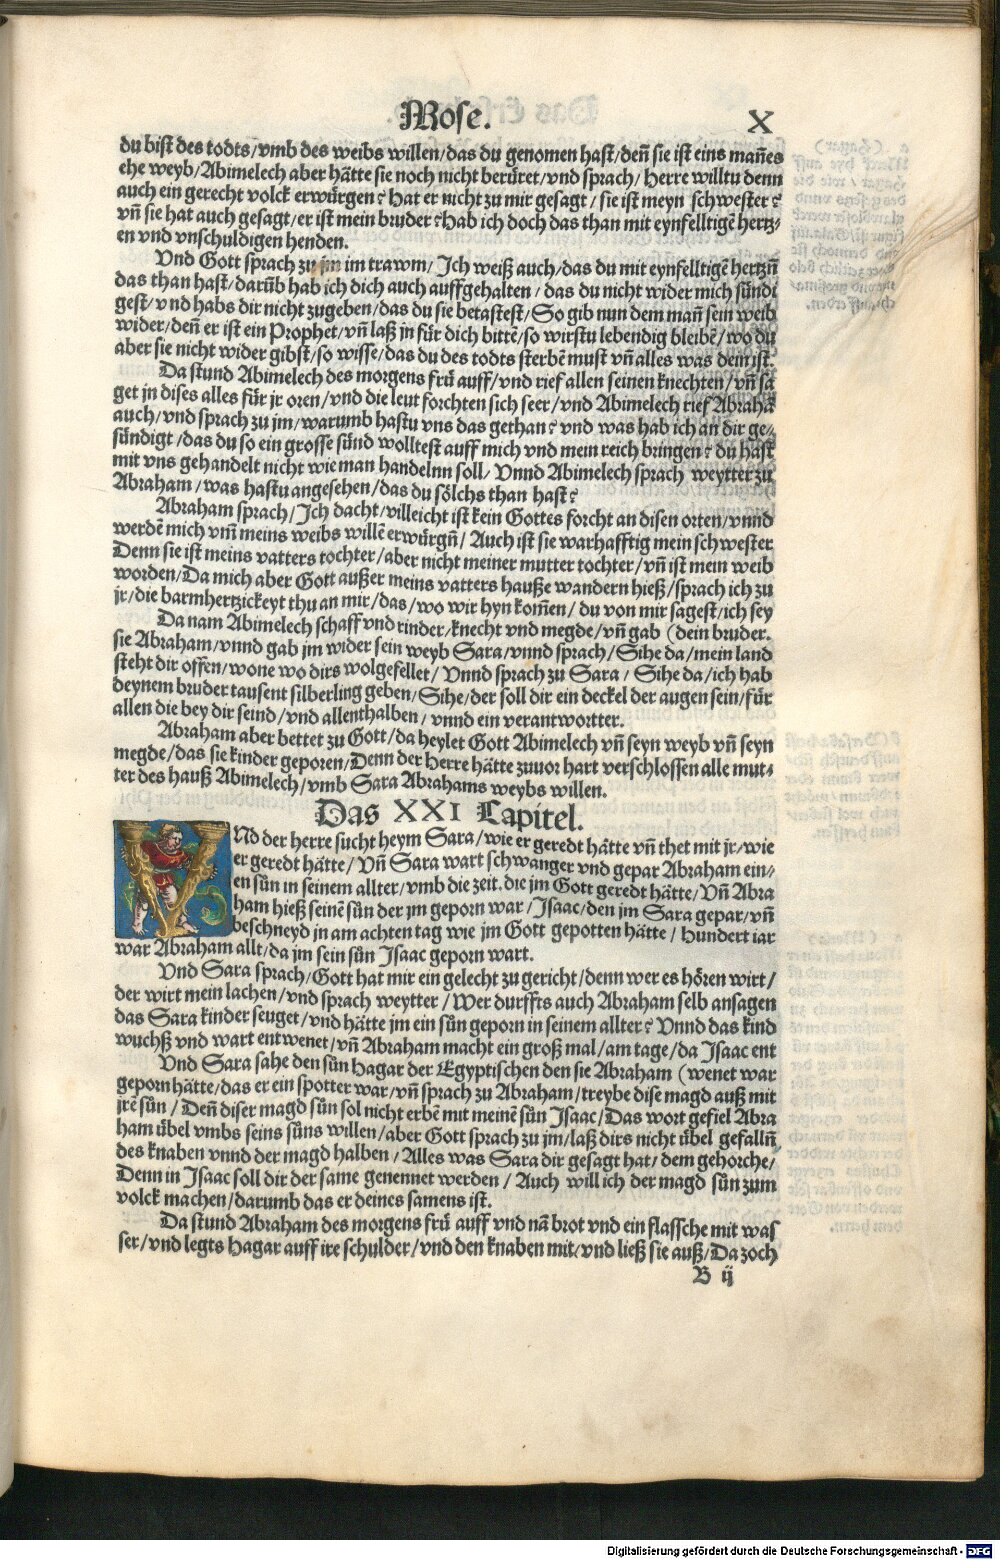 Mose. X
du bist des todts/vmb des weibs willen/das du genomen hast/deñ sie ist eins mañes
ehe weyb/Abimelech aber hätte sie noch nicht berüret/vnd sprach/Herre willtu denn
auch ein gerecht volck erwürgen? Hat er nicht zu mir gesagt/sie ist meyn schwester?
vñ sie hat auch gesagt/er ist mein bruder? Hab ich doch das than mit eynfelltigẽ hertz⸗
en vnd vnschuldigen henden.
Vnd Gott sprach zu jm im trawm/Ich weiß auch/das du mit eynfelltigẽ hertzñ
das than hast/darũb hab ich dich auch auffgehalten/das du nicht wider mich sündi
gest/vnd habs dir nicht zugeben/das du sie betastest/So gib nun dem mañ sein weib
wider/deñ er ist ein Prophet/vñ laß jn für dich bittẽ/so wirstu lebendig bleibẽ/wo du
aber sie nicht wider gibst/so wisse/das du des todts sterbẽ must vñ alles was dein ist.
Da stund Abimelech des morgens frü auff/vnd rief allen seinen knechten/vñ sa
get jn dises alles für jr oren/vnd die leut forchten sich seer/vnd Abimelech rief Abrahã
auch/vnd sprach zu jm/warumb hastu vns das gethan? vnd was hab ich an dir ge⸗
sündigt/das du so ein grosse sünd wolltest auff mich vnd mein reich bringen? du hast
mit vns gehandelt nicht wie man handelnn soll/Vnnd Abimelech sprach weytter zu
Abraham/was hastu angesehen/das du sölchs than hast?
Abraham sprach/Ich dacht/villeicht ist kein Gottes forcht an disen orten/vnnd
werdẽ mich vm̃ meins weibs willẽ erwürgñ/Auch ist sie warhafftig mein schwester
Denn sie ist meins vatters tochter/aber nicht meiner mutter tochter/vñ ist mein weib
worden/Da mich aber Gott außer meins vatters hauße wandern hieß/sprach ich zu
jr/die barmhertzickeyt thu an mir/das/wo wir hyn kom̃en/du von mir sagest/ich sey
Da nam Abimelech schaff vnd rinder/knecht vnd megde/vñ gab (dein bruder.
sie Abraham/vnnd gab jm wider sein weyb Sara/vnnd sprach/Sihe da/mein land
steht dir offen/wone wo dirs wolgefellet/Vnnd sprach zu Sara/Sihe da/ich hab
deynem bruder tausent silberling geben/Sihe/der soll dir ein deckel der augen sein/für
allen die bey dir seind/vnd allenthalben/vnnd ein verantwortter.
Abraham aber bettet zu Gott/da heylet Gott Abimelech vñ seyn weyb vñ seyn
megde/das sie kinder geporen/Denn der Herre hätte zuuor hart verschlossen alle mut⸗
ter des hauß Abimelech/vmb Sara Abrahams weybs willen.
Das XXI Capitel.
VNd der herre sucht heym Sara/wie er geredt hätte vñ thet mit jr/wie
er geredt hätte/Vñ Sara wart schwanger vnd gepar Abraham ein⸗
en sün in seinem allter/vmb die zeit.die jm Gott geredt hätte/Vñ Abra
ham hieß seinẽ sün der jm geporn war/Isaac/den jm Sara gepar/vñ
beschneyd jn am achten tag wie jm Gott gepotten hätte/Hundert iar
war Abraham allt/da jm sein sün Isaac geporn wart.
Vnd Sara sprach/Gott hat mir ein gelecht zu gericht/denn wer es hören wirt/
der wirt mein lachen/vnd sprach weytter/Wer durffts auch Abraham selb ansagen
das Sara kinder seuget/vnd hätte jm ein sün geporn in seinem allter? Vnnd das kind
wuchß vnd wart entwenet/vñ Abraham macht ein groß mal/am tage/da Isaac ent
Vnd Sara sahe den sün Hagar der Egyptischen den sie Abraham (wenet war
geporn hätte/das er ein spotter war/vñ sprach zu Abraham/treybe dise magd auß mit
jrẽ sün/Deñ diser magd sün sol nicht erbẽ mit meinẽ sün Isaac/Das wort gefiel Abra
ham übel vmbs seins süns willen/aber Gott sprach zu jm/laß dirs nicht übel gefallñ
des knaben vnnd der magd halben/Alles was Sara dir gesagt hat/dem gehorche/
Denn in Isaac soll dir der same genennet werden/Auch will ich der magd sün zum
volck machen/darumb das er deines samens ist.
Da stund Abraham des morgens frü auff vnd nã brot vnd ein flassche mit was
ser/vnd legts Hagar auff ire schulder/vnd den knaben mit/vnd ließ sie auß/Da zoch
B ij
Digitalisierung gefördert durch die Deutsche Forschungsgemeinschaft - DFG